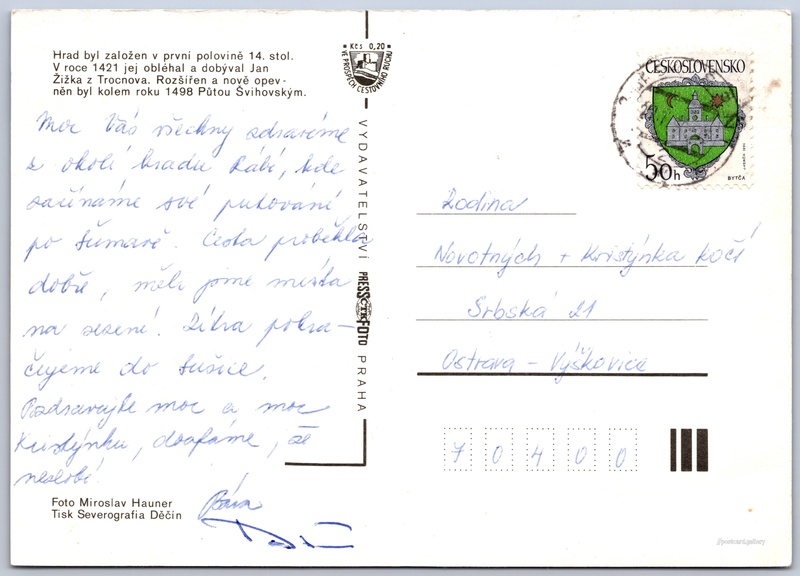 Hrad byl založen v první polovině 14. stol.
V roce 1421 jej obléhal a dobýval Jan
Žižka z Trocnova. Rozšířen a nově opev-
něn byl kolem roku 1498 Půtou Švihovským.
Moc Vás všechny zdravíme
z okolí hradu Rábí, kde
začínáme své putování
po Šumavě. Cesta proběhla
dobře, měli jsme místa
na sezení. Zítra pokra-
čujeme do Sušice.
Pozdravujte moc a moc
Kristýnku, doufáme, že
nezlobí!
Bára
Foto Miroslav Hauner
Tisk Severografia Děčín
Kčs 0,20
VE PROSPĚCH CESTOVNÍHO RUCHU
VYDAVATELSTVÍ PRESSFOTO PRAHA
ČTK
ČESKOSLOVENSKO
50h
BYTČA
Rodina
Novotných + Kristýnka Kočí
Srbská 21
Ostrava - Výškovice
7 0 4 0 0
@postcard.gallery